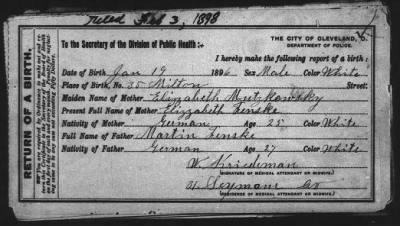 Filed Feb 3, 1898
THE CITY OF CLEVELAND, O.
DEPARTMENT OF POLICE.
To the Secretary of the Division of Public Health:
I hereby make the following report of a birth:
Date of Birth Jan 19 1896 Sex Male Color White
Place of Birth, No. 35 Milton Street:
Maiden Name of Mother Elizabeth
Present Full Name of Mother Elizabeth Zenske
Nativity of Mother German Age 25 Color White
Full Name of Father Martin Zenske
Nativity of Father German Age 27 Color White
W. Kriedeman
(SIGNATURE OF MEDICAL ATTENDANT OR MIDWIFE.)
Seymour Av
(RESIDENCE OF MEDICAL ATTENDANT OR MIDWIFE.)
RETURN OF A BIRTH.